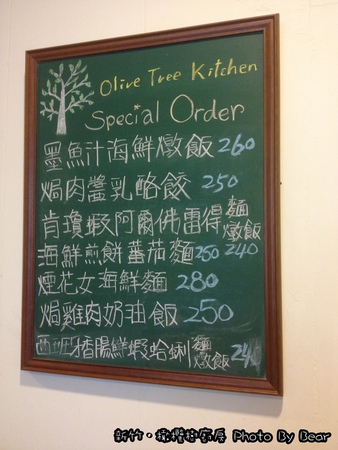 Olive Tree Kitchen
Special Order
墨魚汁海鮮燉飯 260
焗肉醬乳酪餃 250
肯瓊蝦阿爾佛雷得麵燉飯 240
海鮮煎餅蕃茄麵 250
煙花女海鮮麵 280
焗雞肉奶油飯 250
西班牙香腸鮮蝦蛤蜊麵燉飯
新竹·橄欖樹廚房 Photo By Bear